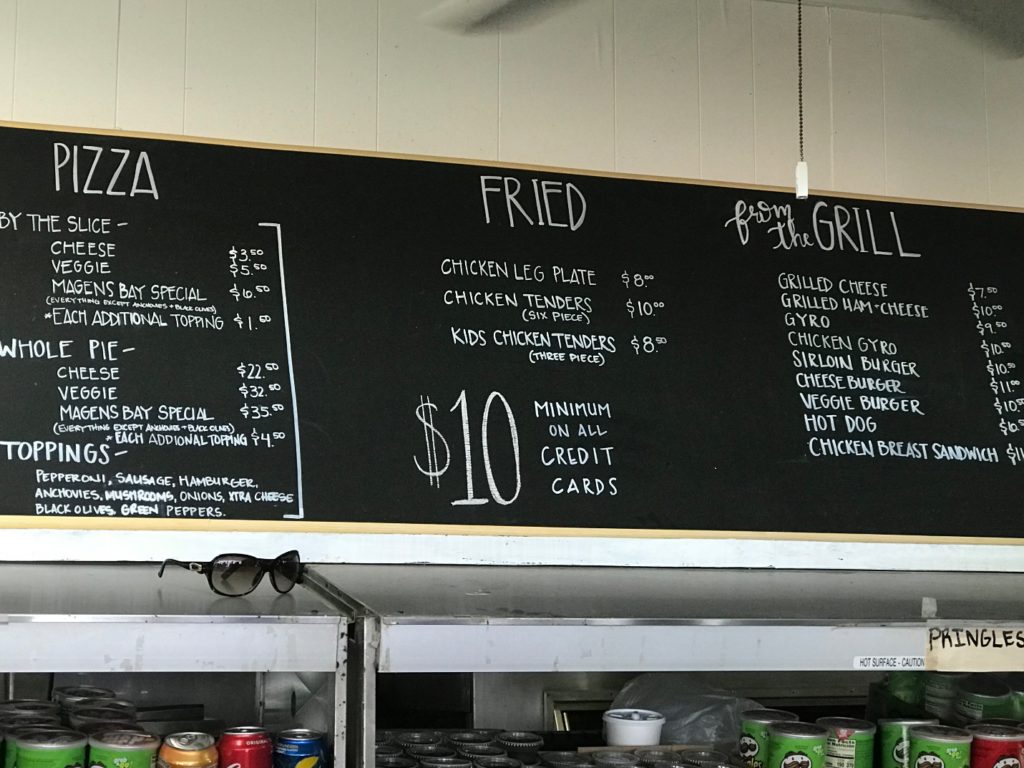 PIZZA
BY THE SLICE -
CHEESE $3.50
VEGGIE $5.50
MAGENS BAY SPECIAL $6.50
(EVERYTHING EXCEPT ANCHOVIES + BLACK OLIVES)
*EACH ADDITIONAL TOPPING $1.50
WHOLE PIE -
CHEESE $22.50
VEGGIE $32.50
MAGENS BAY SPECIAL $35.50
(EVERYTHING EXCEPT ANCHOVIES + BLACK OLIVES)
*EACH ADDIONAL TOPPING $4.50
TOPPINGS -
PEPPERONI, SAUSAGE, HAMBURGER,
ANCHOVIES, MUSHROOMS, ONIONS, XTRA CHEESE
BLACK OLIVES, GREEN PEPPERS.
FRIED
CHICKEN LEG PLATE $8.00
CHICKEN TENDERS $10.00
(SIX PIECE)
KIDS CHICKEN TENDERS $8.50
(THREE PIECE)
$10 MINIMUM
ON ALL
CREDIT
CARDS
from the GRILL
GRILLED CHEESE $7.50
GRILLED HAM + CHEESE $10.00
GYRO $9.50
CHICKEN GYRO $10.
SIRLOIN BURGER $10.
CHEESE BURGER $11.
VEGGIE BURGER $10.
HOT DOG
CHICKEN BREAST SANDWICH $11
HOT SURFACE - CAUTION
PRINGLES
ORIGINAL